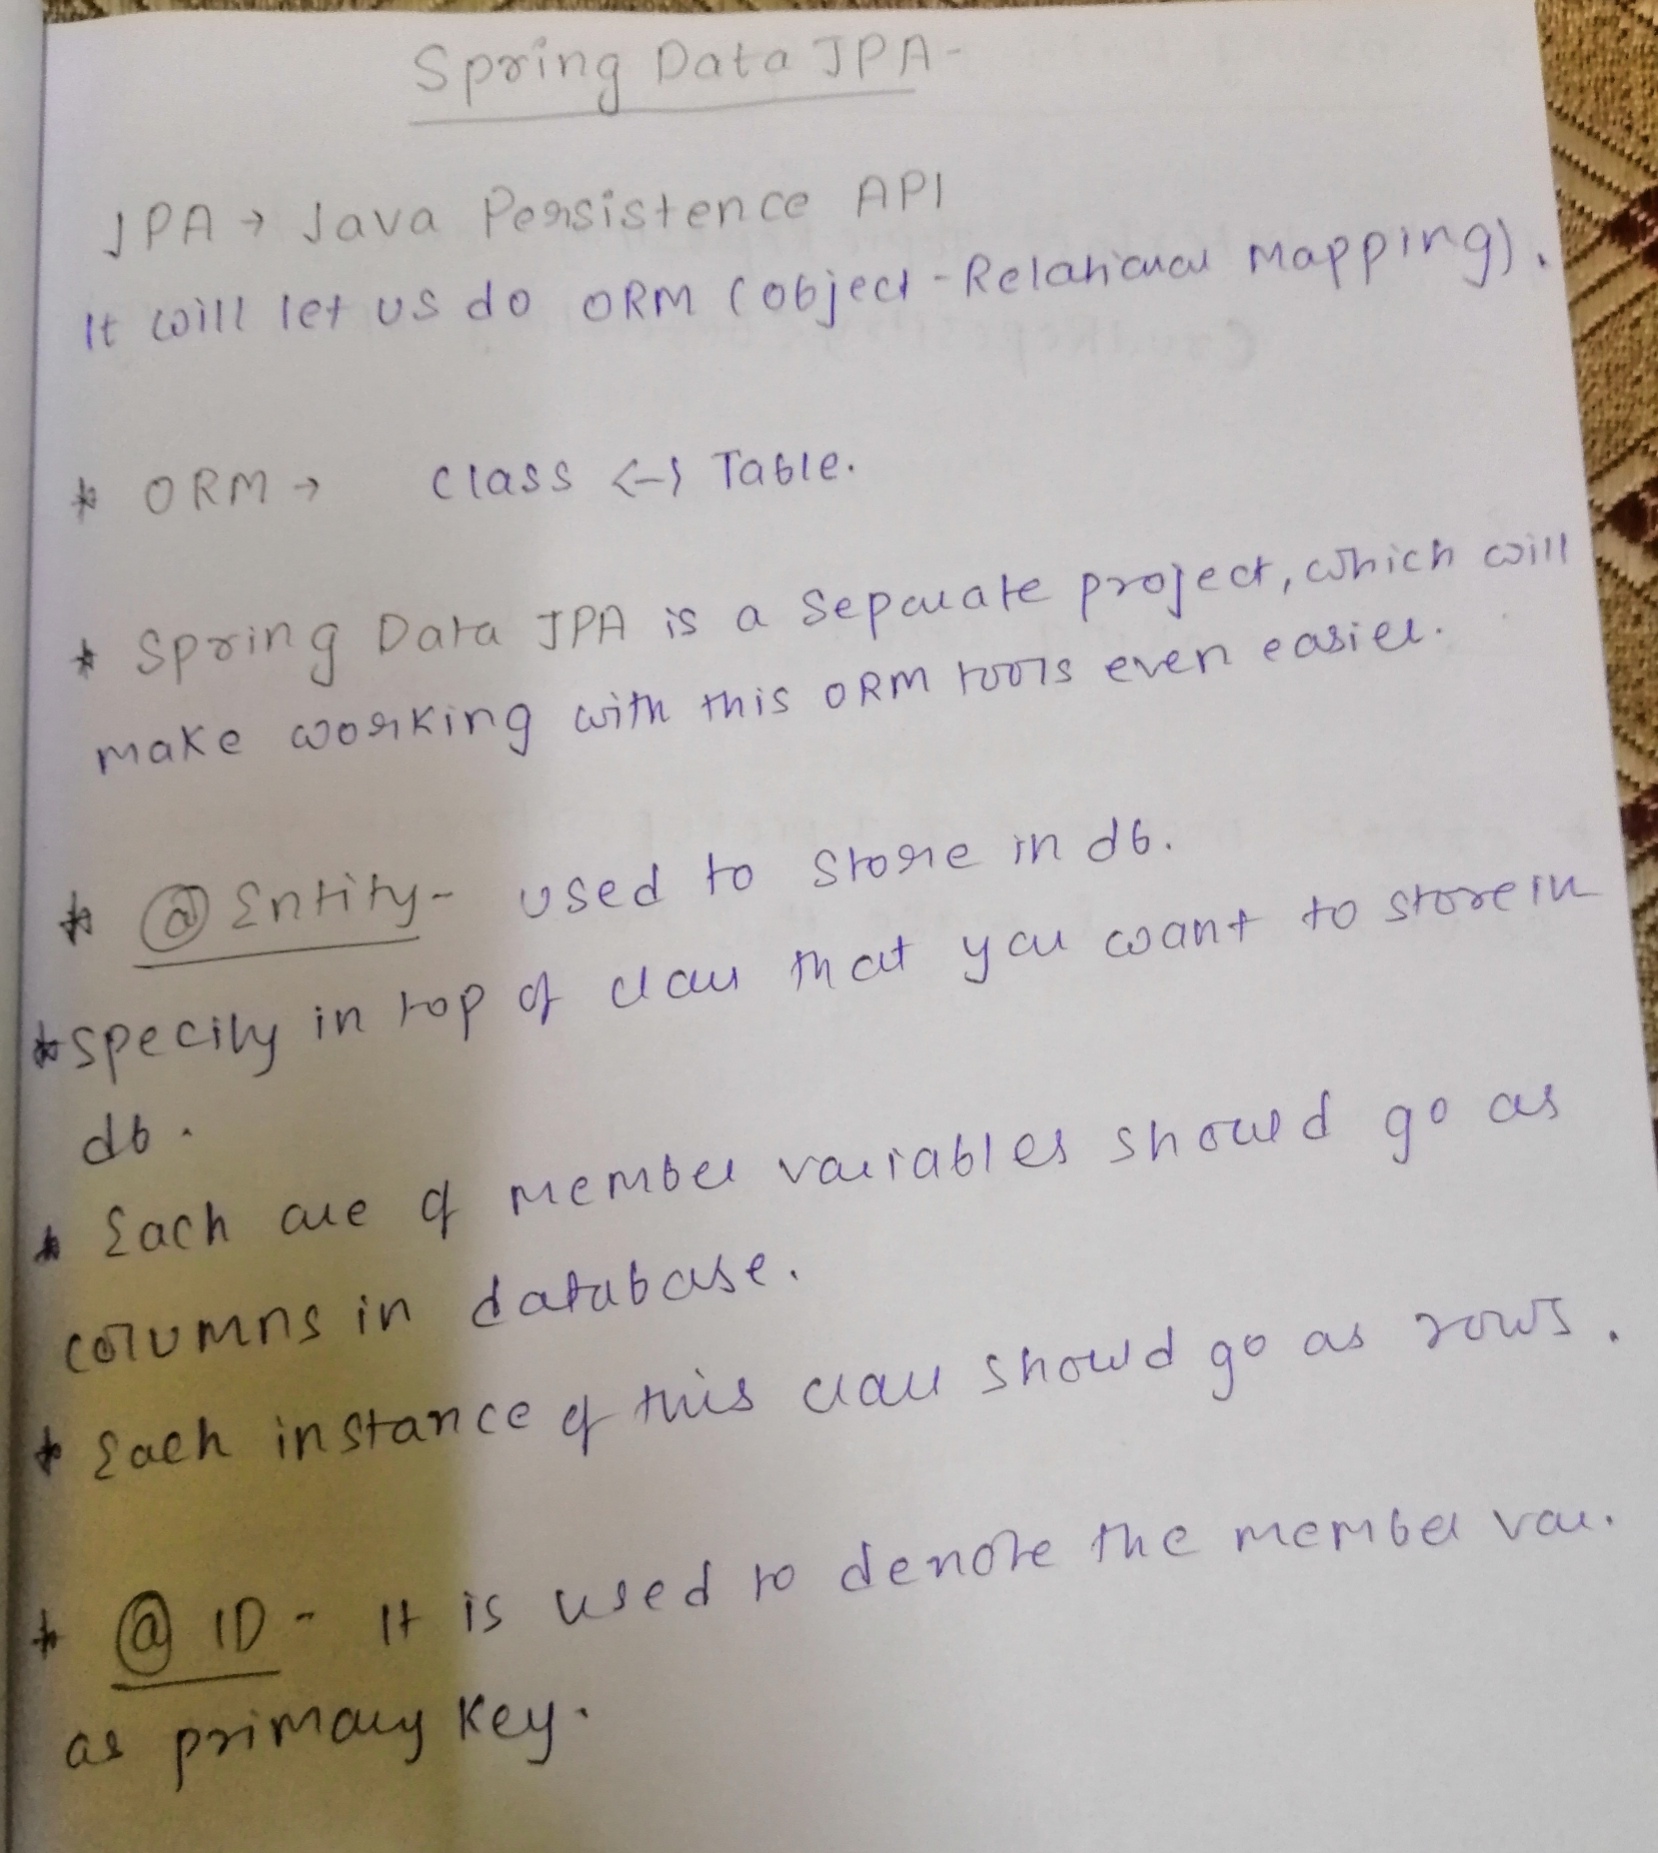 Spring Data JPA-
JPA → Java Persistence API
It will let us do ORM (object-Relational Mapping).
* ORM → class <-> Table.
* Spring Data JPA is a separate project, which will
make working with this ORM tools even easier.
* @Entity- used to store in db.
* specify in top of class that you want to store in
db.
* Each are of member variables should go as
columns in database.
* Each instance of this class should go as rows.
* @ID - It is used to denote the member var.
as primary key.